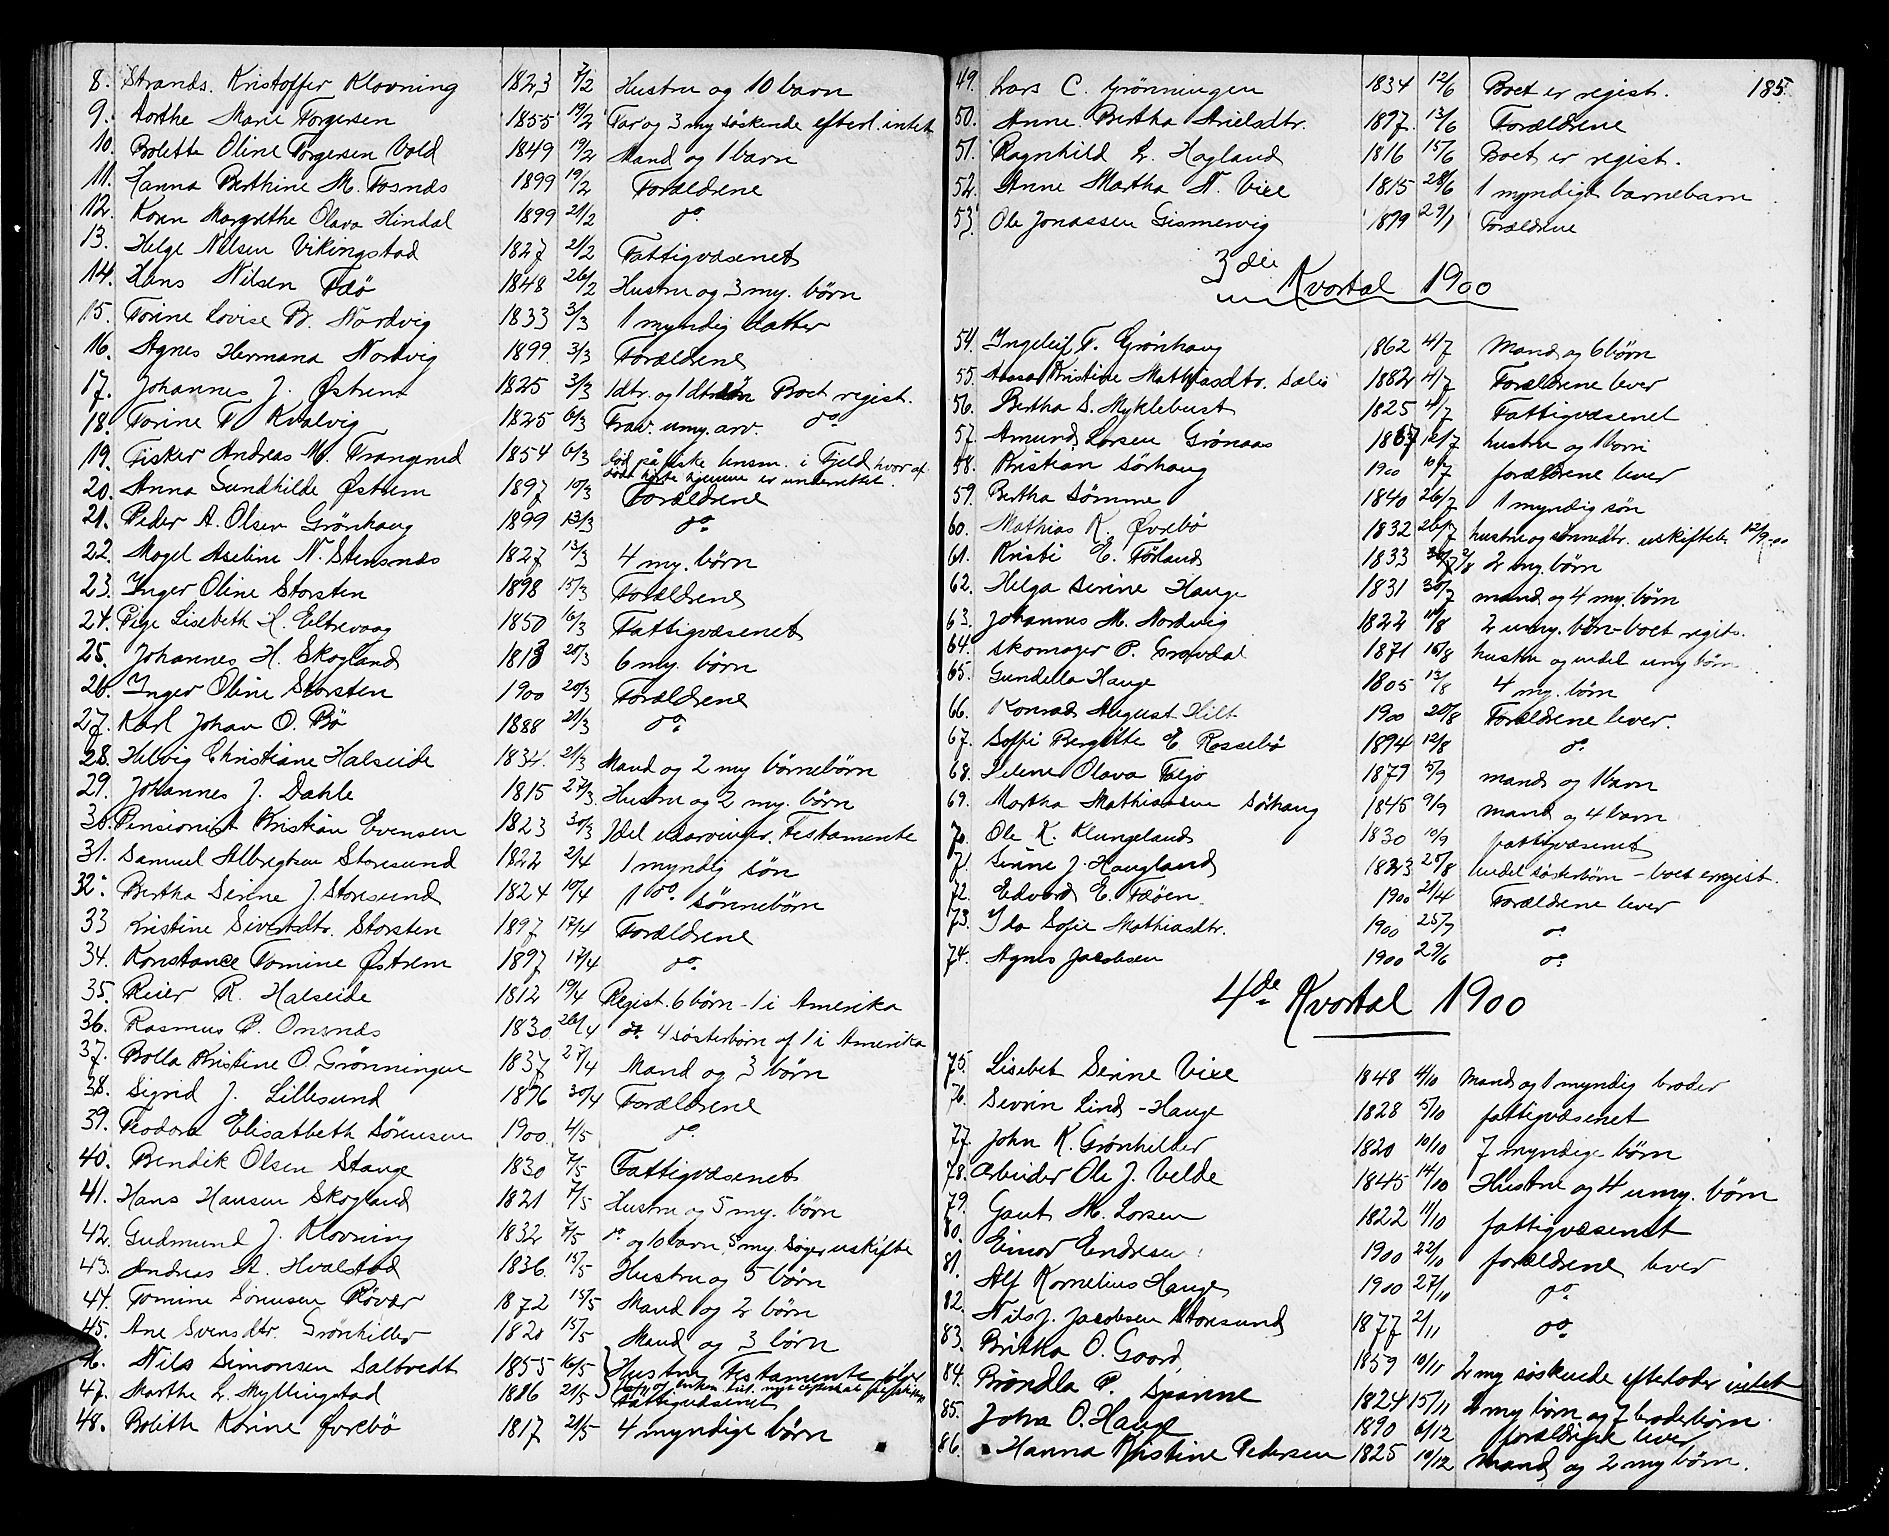 8. Strands. Kristoffer Klovning 1823 7/2 Hustru og 10 barn
9. Dorthe Marie Torgersen 1855 19/2 Far og 3 my søskende efterl. intet
10. Bolette Oline Torgersen Vold 1849 19/2 Mand og 1 barn
11. Hanna Berthine M. Fosnæs 1899 19/2 Forældrene
12. Karen Margrethe Olava Hindal 1899 21/2 do
13. Helge Nilsen Vikingstad 1827 21/2 Fattigvæsenet
14. Hans Nilsen Feø 1848 26/2 Hustru og 3 my. børn
15. Torine Lovise B. Nordvig 1833 3/3 1 myndig datter
16. Agnes Hermana Nordvig 1899 3/3 Forældrene
17. Johannes J. Østrem 1825 3/3 1 dtr. og 1 dtrsøn Boet regist.
18. Torine T. Kvalvig 1825 6/3 Frav. umy. arv. do
19. Fisker Andreas M. Trangerud 1854 6/3 lod på fiske lensm. i Fjeld hvor af
20. Anna Gundhilde Østrem 1897 10/3 Forældrene
21. Peder A. Olsen Grønhaug 1899 13/3 do
22. Magel Aseline N. Stensnæs 1827 13/3 4 my. børn
23. Inger Oline Storsten 1898 15/3 Forældrene
24. Pige Lisebeth H. Eltrevaag 1850 16/3 Fattigvæsenet
25. Johannes H. Skogland 1813 20/3 6 my. børn
26. Inger Oline Storsten 1900 20/3 Forældrene
27. Karl Johan O. Bø 1888 21/3 do
28. Helvig Christiane Halseide 1834 21/3 Mand og 2 my børnebørn
29. Johannes J. Dahle 1815 27/3 Hustru og 2 my. børn
30. Pensionist Kristian Evensen 1823 30/3 Idel udarvinger. Testamente
31. Samuel Albregtsen Storesund 1822 2/4 1 myndig søn
32. Bertha Serine J. Storesund 1824 10/4 1 do. sønnebørn
33 Kristine Sivertsdtr. Storsten 1897 17/4 Forældrene
34. Konstance Tomine Østrem 1897 17/4 do.
35. Reier R. Halseide 1812 19/4 Regist. 6 børn - 1 i Amerika
36. Rasmus P. Onsnæs 1830 26/4 do. 4 søsterbørn af 1 i Amerika
37. Bolla Kristine O. Grønningen 1837 27/4 Mand og 3 børn
38. Sigrid J. Lillesund 1896 30/4 Forældrene
39. Teodora Elisatbeth Sørensen 1900 4/5 do.
40. Bendik Olsen Stange 1830 7/5 Fattigvæsenet
41. Hans Hansen Skogland 1821 7/5 Hustru og 5 my. børn
42. Gudmund J. Klovning 1832 7/5 do og 10 barn, 5 my. Søger uskifte
43. Andreas A. Hvalstad 1836 15/5 Hustru og 5 børn
44. Tomine Sørensen Røvær 1872 15/5 Mand og 2 børn
45. Ane Svensdtr. Grønhiller 1820 15/5 Mand og 3 børn
46. Nils Simonsen Saltvedt 1855 16/5 Hustru Testamente følger
47. Marthe L. Myllingstad 1816 21/5 Fattigvæsenet
48. Bolitte Karine Øvrebø 1817 21/5 4 myndige børn
185
49. Lars C. Grønningen 1834 12/6 Boet er regist.
50. Anne Bertha Arielsdtr. 1897 13/6 Forældrene
51. Ragnhild L. Hagland 1816 15/6 Boet er regist.
52. Anne Martha N. Vice 1815 28/6 1 myndigt barnebarn
53. Ole Jonassen Gismervig 1899 29/1 Forældrene
3die Kvartal 1900
54. Ingeleif T. Grønhaug 1862 4/7 Mand og 6 børn
55. Aasa Kristine Mathiasdtr. 1882 4/7 Forældrene lever
56. Bertha S. Myklebust 1825 4/7 Fattigvæsenet
57. Amund Larsen Grønaas 1867 12/7 hustru og 1 barn
58. Kristian Sørhaug 1900 forældrene lever
59. Bertha Sømme 1840 26/7 1 myndig søn
60. Mathias K. Øvrebø 1832 26/7 hustru og sønnedtr. uskiftebo 12/9-00
61. Kristi E. Førland 1833 2/8 2 my. børn
62. Helga Serine Hauge 1831 30/7 mand og 4 my. børn
63. Johannes M. Nordvig 1822 11/8 2 umy. børn - boet regits.
64. Skomager P. Grøvdal 1871 15/8 hustru og endel umy børn
65. Gundella Hauge 1805 13/8 4 my. børn
66. Konrad August Hilt 1900 20/8 Forældrene lever.
67. Soffi Bergitte E. Rossebø 1894 12/8 do
68. Selene Olava Feøjo 1879 5/9 mand og 1 barn
69. Martha Mathiassen Sørhaug 1845 9/9 mand og 4 barn
70. Ole K. Klungeland 1830 10/9 fattigvæsenet
71. Serine J. Haugland 1823 25/8 endel søsterbørn - boet er regist.
72. Edvard E. Feøen. 1900 21/4 Forældrene lever
73. Ida Sofie Mathiasdtr. 1900 25/7 do
74. Agnes Jacobsen 1900 29/6 do
4de Kvartal 1900
75. Lisebet Serine Vice 1848 4/10 Mand og 1 myndig broder
76. Sevrin Lind - Hauge 1828 5/10 fattigvæsenet
77. John K. Grønhiller 1820 10/10 7 myndige børn
78. Arbeider Ole J. Velde 1845 14/10 Hustru og 4 umy. børn
79. Gaut M. Larsen 1822 11/10 fattigvæsenet
80. Einar Endresen 1900 22/10 forældrene lever
81. Alf Kornelius Hauge 1900 27/10 do
82. Nils J. Jacobsen Storesund 1877 2/11 do
83. Britha O. Gaard 1859 10/11 2 my søskende efterlader intet
84. Brøndla P. Spanne 1824 15/11 2 my børn og 7 broderbørn.
85. Johan O. Hauge 1890 6/12 forældrene lever
86. Hanna Kristine Pedersen 1825 10/12 mand og 2 my børn.